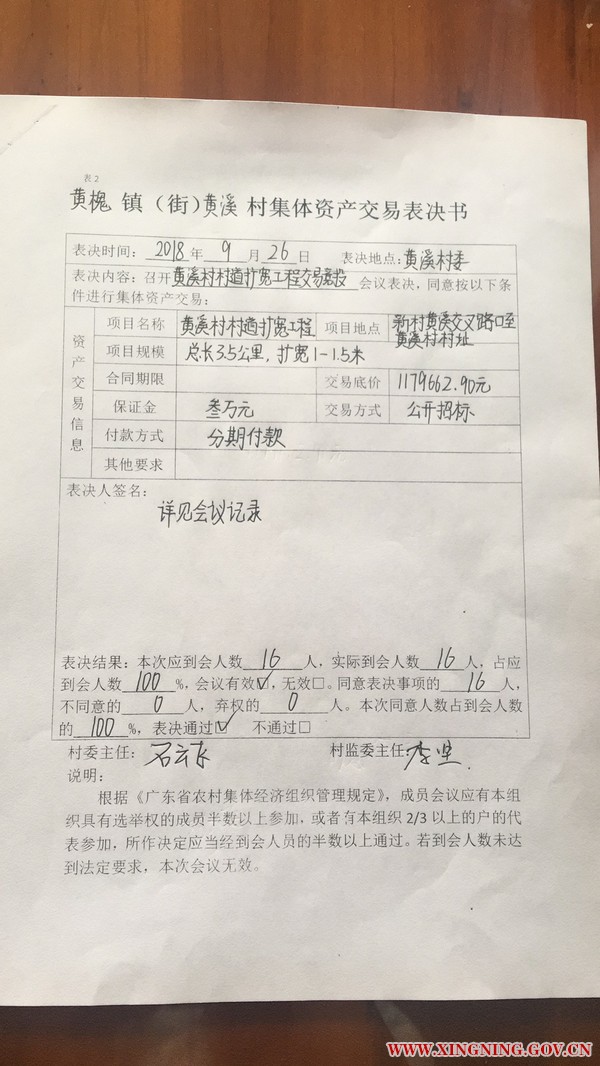 表2
黄槐 镇（街）黄溪 村集体资产交易表决书
表决时间：2018年 9 月 26 日 表决地点：黄溪村委
表决内容：召开黄溪村村道扩宽工程交易竞投 会议表决，同意按以下条
件进行集体资产交易：
资产交易信息
项目名称 黄溪村村道扩宽工程 项目地点 新村黄溪交叉路口至黄溪村村址
项目规模 总长3.5公里，扩宽1-1.5米
合同期限 交易底价 1179662.90元
保证金 叁万元 交易方式 公开招标
付款方式 分期付款
其他要求
表决人签名：
详见会议记录
表决结果：本次应到会人数 16 人，实际到会人数 16 人，占应
到会人数 100 %，会议有效☑，无效□。同意表决事项的 16 人，
不同意的 0 人，弃权的 0 人。本次同意人数占到会人数
的 100 %，表决通过☑ 不通过□
村委主任： 村监委主任：李坚
说明：
根据《广东省农村集体经济组织管理规定》，成员会议应有本组
织具有选举权的成员半数以上参加，或者有本组织 2/3 以上的户的代
表参加，所作决定应当经到会人员的半数以上通过。若到会人数未达
到法定要求，本次会议无效。
WWW.XINGNING.GOV.CN